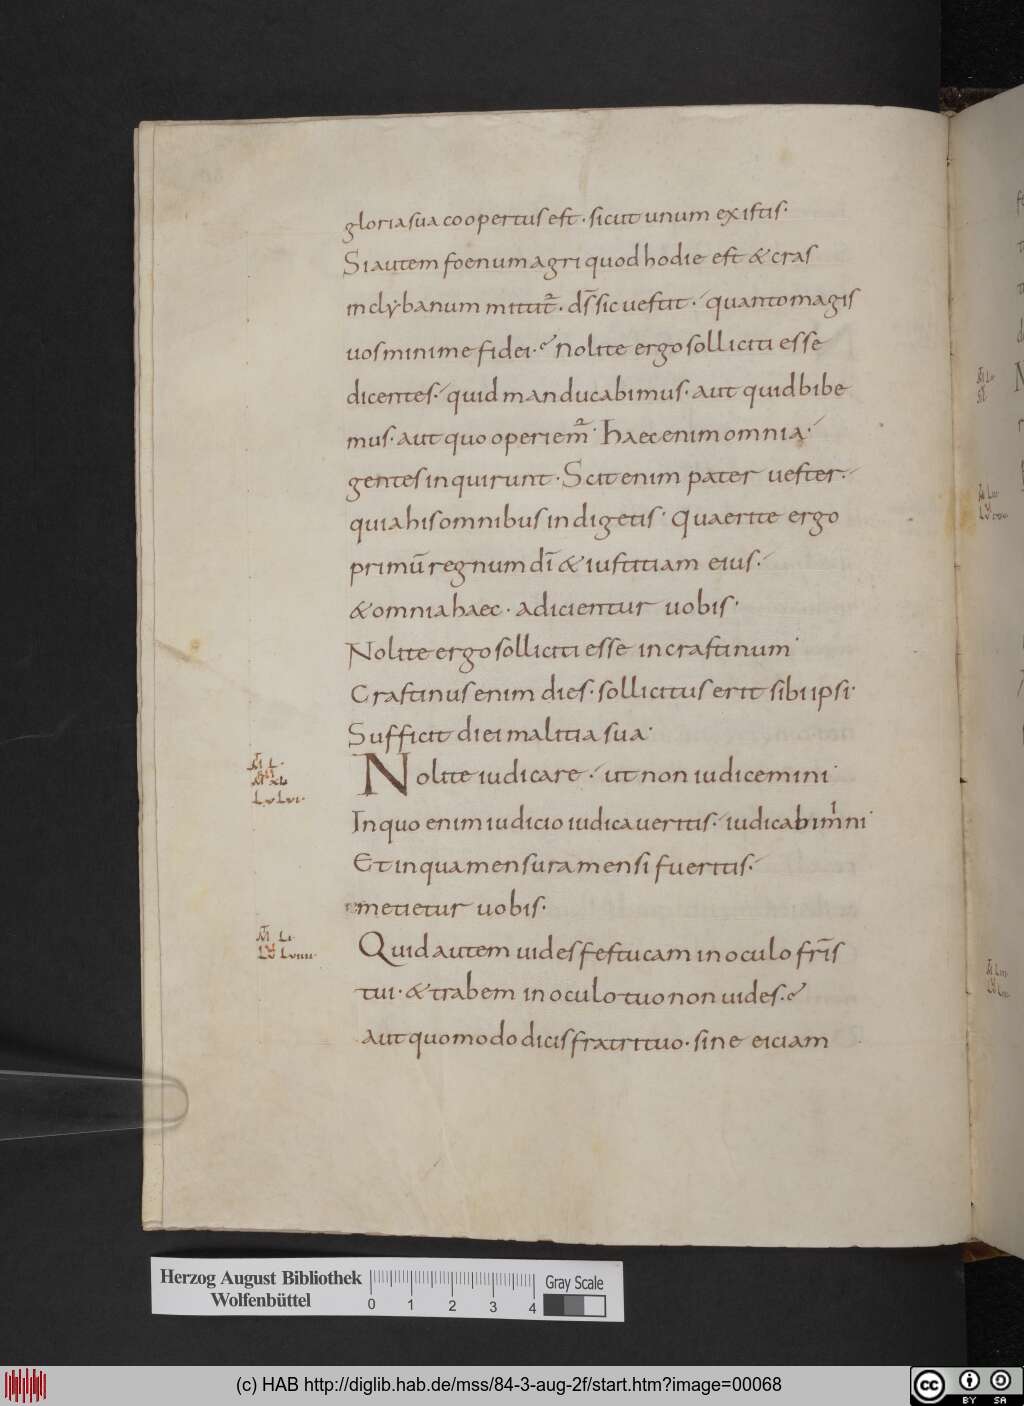 gloria sua coopertus est · sicut unum ex istis·
Si autem foenum agri quod hodie est & cras
in clybanum mittit᷑ · ds̄ sic uestit · quanto magis
uos minime fidei · Nolite ergo solliciti esse
dicentes · quid manducabimus · aut quid bibe
mus · aut quo operiem᷑ · haec enim omnia ·
gentes inquirunt · Scit enim pater uester ·
quia his omnibus indigetis · Quaerite ergo
primū regnum dī & iustitiam eius ·
& omnia haec · adicientur uobis ·
Nolite ergo solliciti esse in crastinum ·
Crastinus enim dies · sollicitus erit sibi ipsi ·
Sufficit diei malitia sua ·
Nolite iudicare · ut non iudicemini ·
In quo enim iudicio iudicaueritis · iudicabimini ·
Et in qua mensura mensi fueritis ·
metietur uobis ·
Quid autem uides festucam in oculo fr̄is
tui · & trabem in oculo tuo non uides ·
aut quomodo dicis fratri tuo · sine eiciam
Herzog August Bibliothek
Wolfenbüttel
0 1 2 3 4
Gray Scale
(c) HAB http://diglib.hab.de/mss/84-3-aug-2f/start.htm?image=00068
cc BY SA